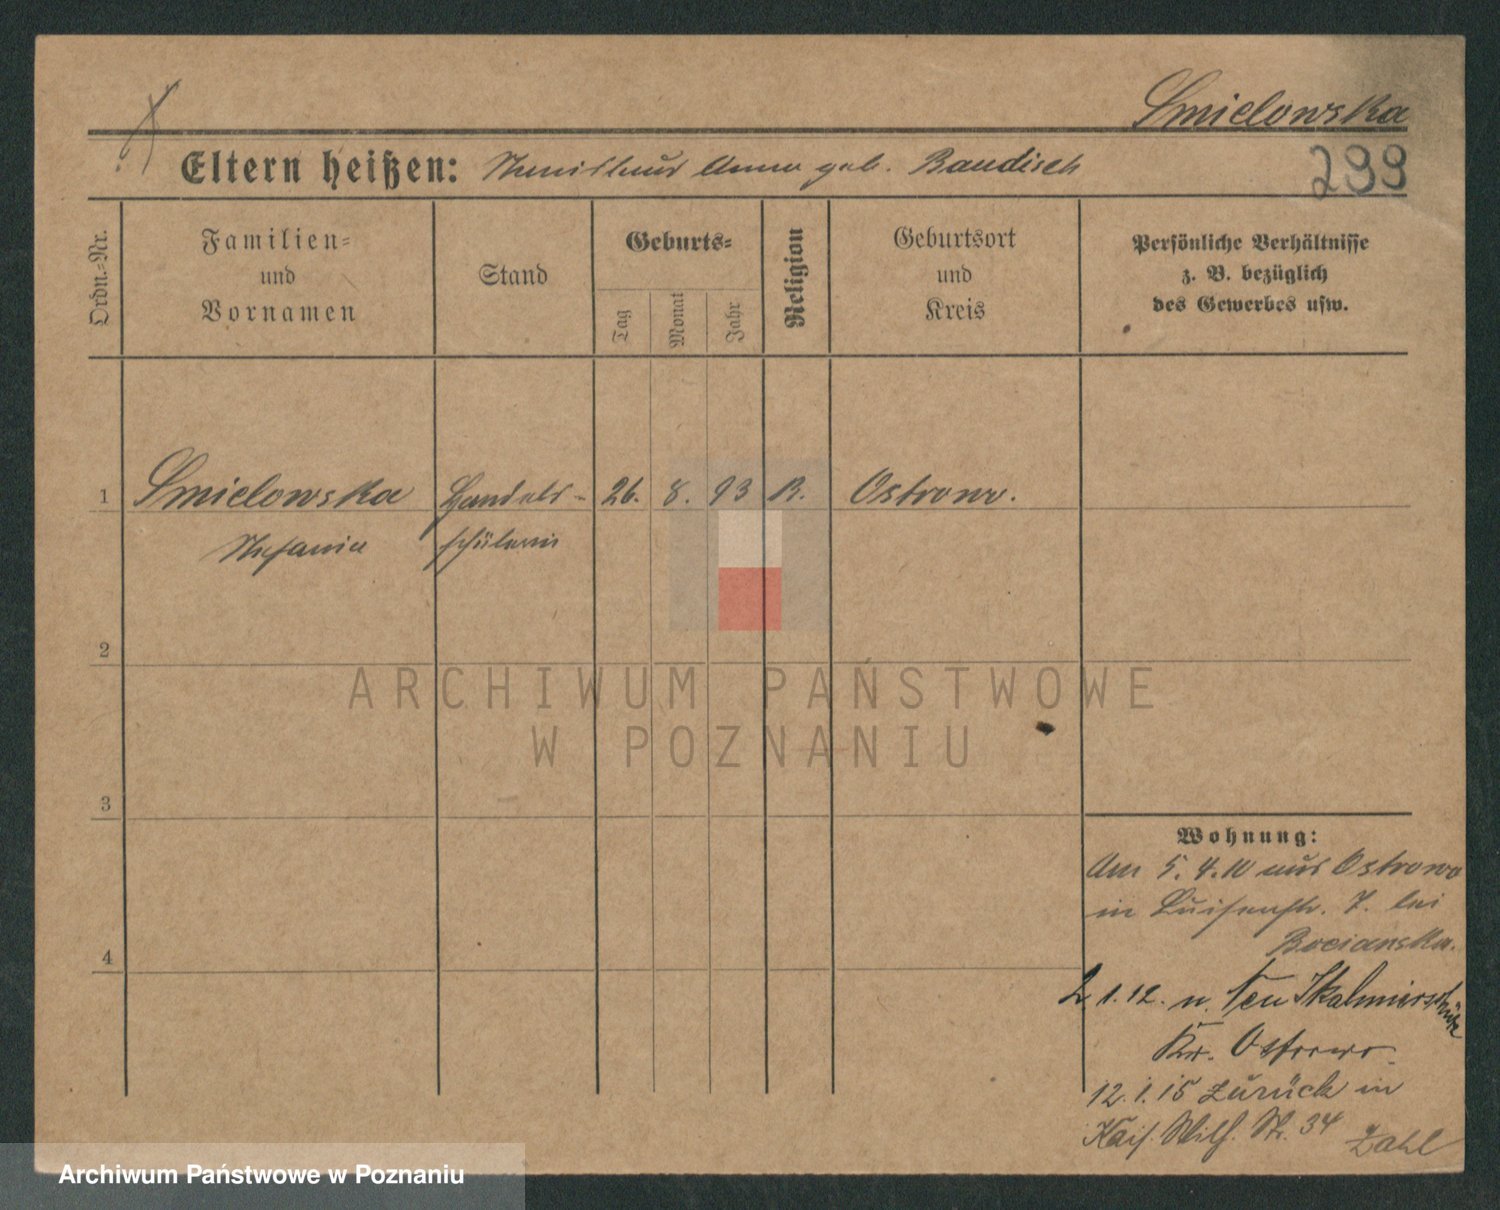 Smielowska
Eltern heißen: Stanislaus Anna geb. Baudisch
299
Ordn.=Nr.
Familien=
und
Vornamen
Stand
Geburts=
Tag
Monat
Jahr
Religion
Geburtsort
und
Kreis
Persönliche Verhältnisse
z. B. bezüglich
des Gewerbes usw.
1 Smielowska Handels- 26. 8. 93 R. Ostrowo.
Stefania schülerin
2
ARCHIWUM PAŃSTWOWE
W POZNANIU
3
Wohnung:
Am 5. 4. 10 aus Ostrowo
in Luisenstr. 7. bei
Bocianska.
4
2. 1. 12. n. Skalmierschütz
Kr. Ostrowo.
12. 1. 15 zurück in
Kais. Wilh. Str. 34 Zahl
Archiwum Państwowe w Poznaniu